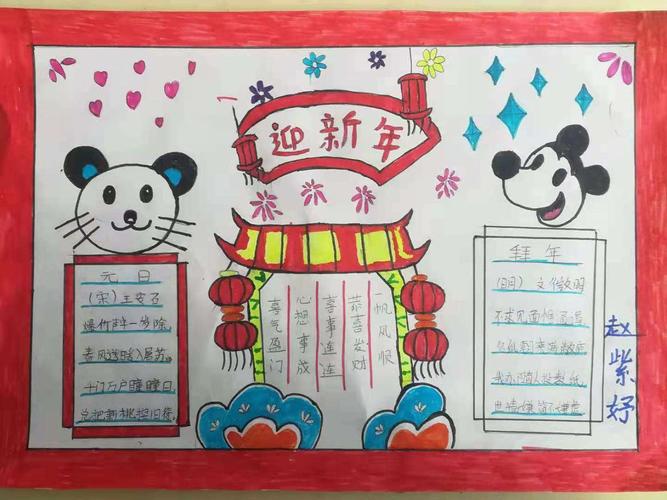 迎新年
元日
(宋)王安石
爆竹声中一岁除
春风送暖入屠苏
千门万户瞳瞳日
总把新桃换旧符
一帆风顺
恭喜发财
喜事连连
心想事成
喜气盈门
拜年
(明) 文徵明
不求见面惟
投数纸
世情嫌简不嫌虚
赵紫妤